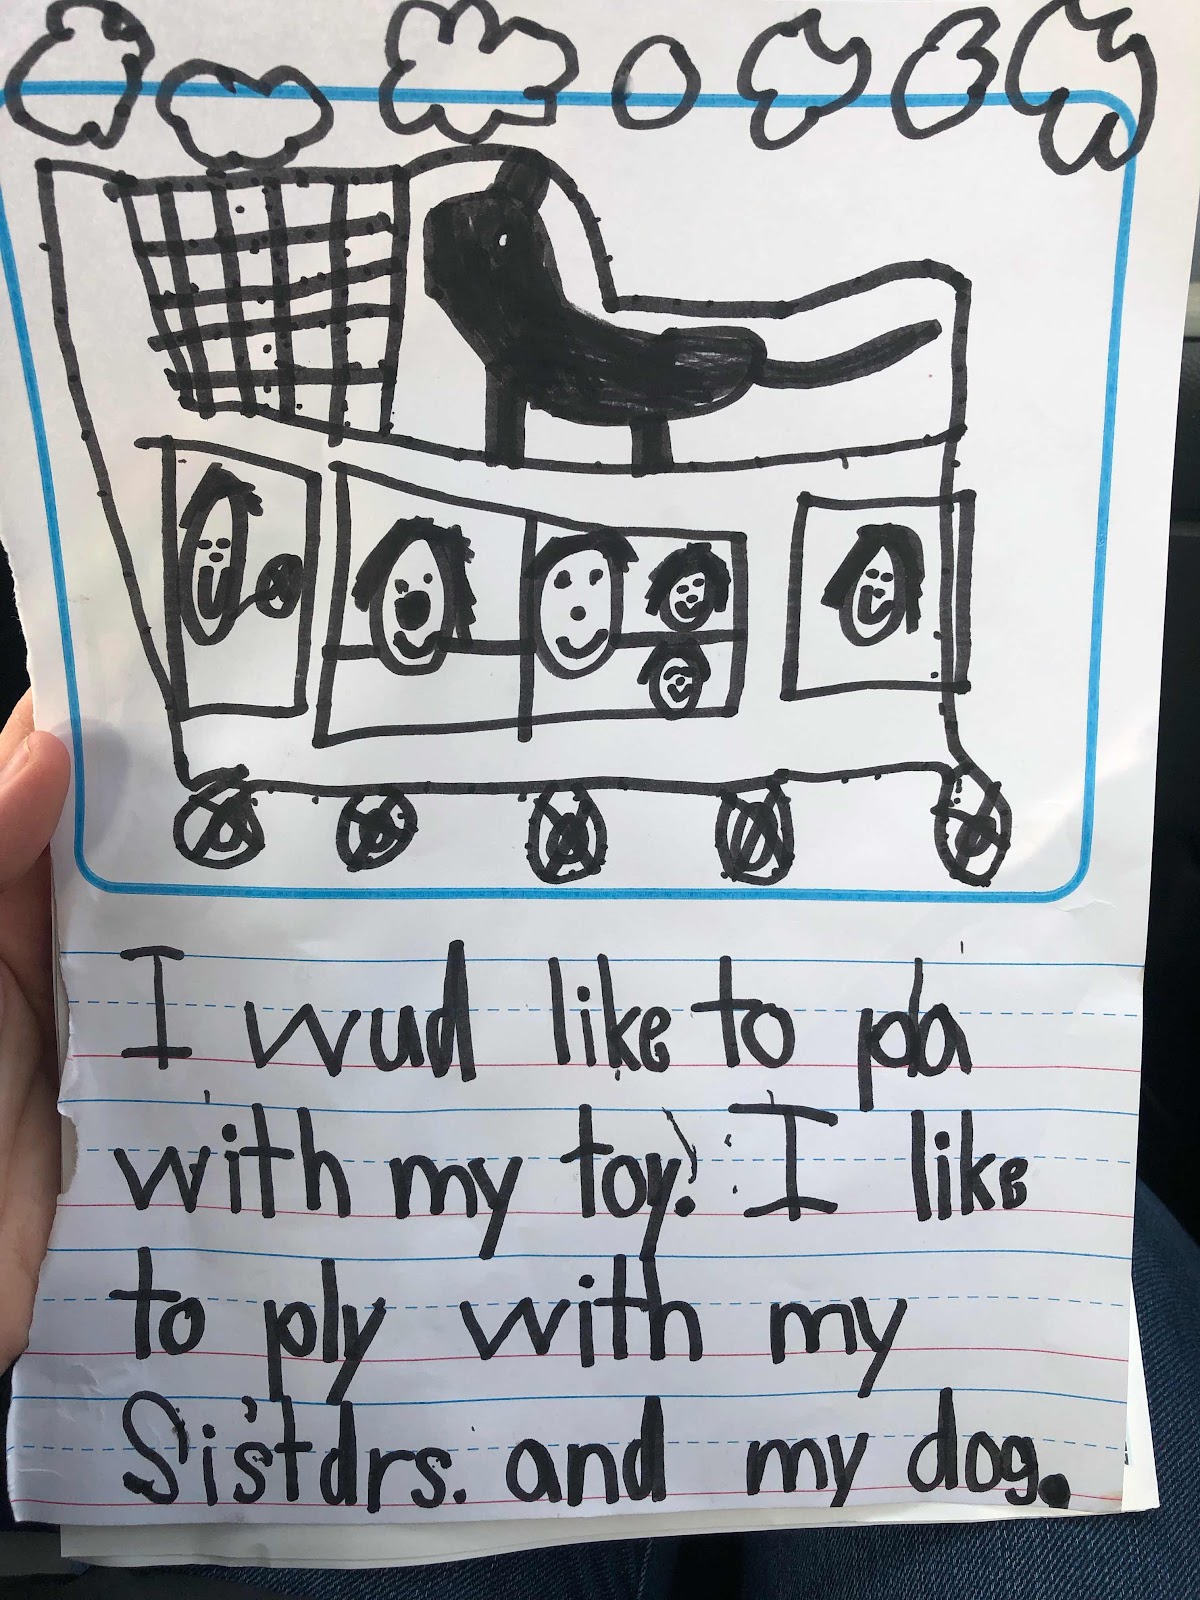 I wud like to pla
with my toy. I like
to ply with my
Sistdrs. and my dog.